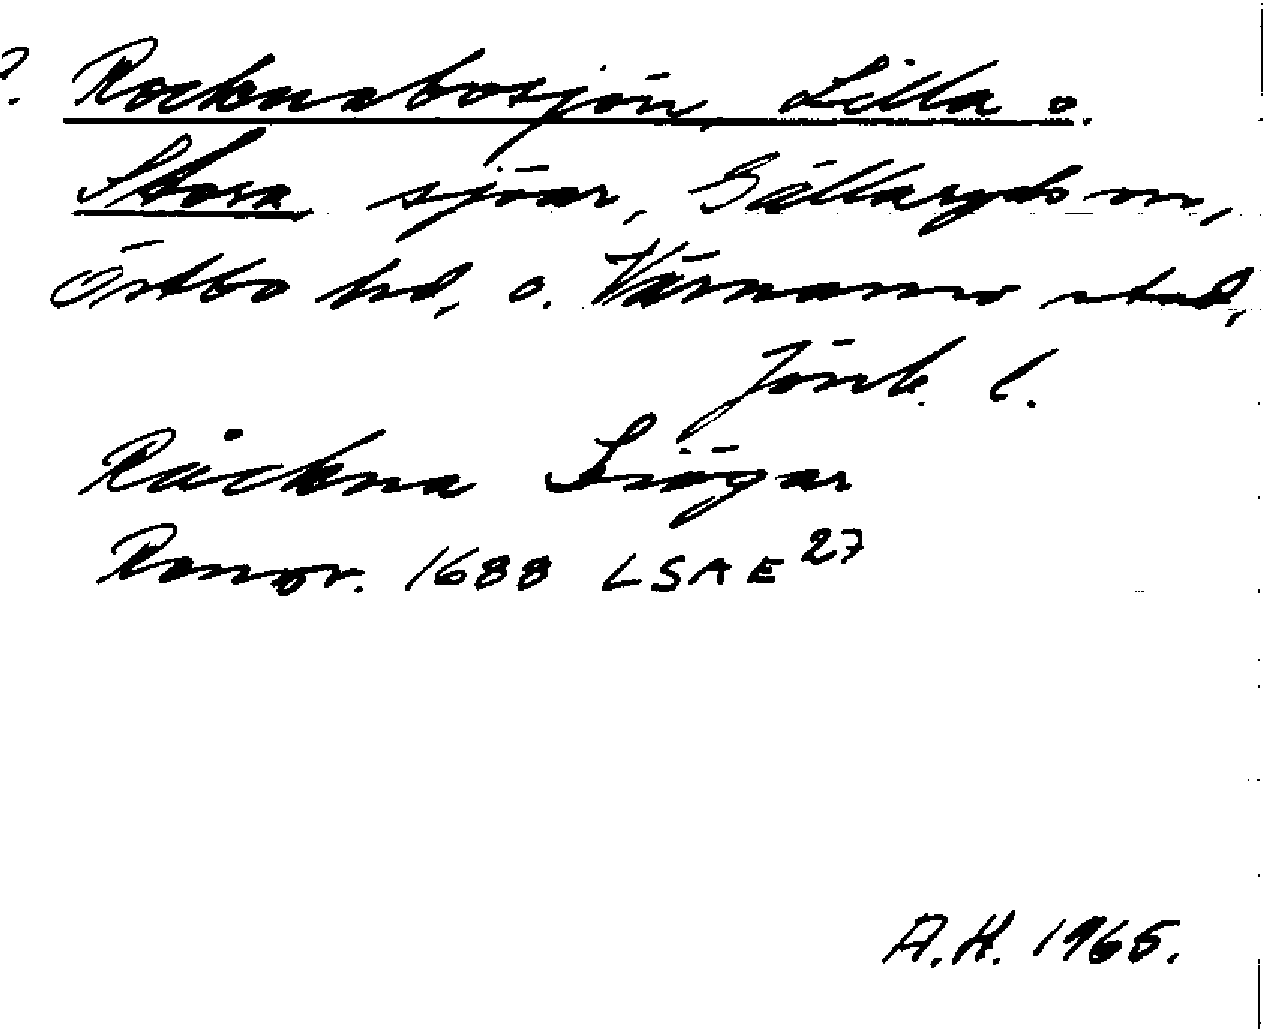 ? Rocknabosjön, Lilla o.
Stora sjöar, Gällaryds sn,
Östbo hd, o. Värnamo stad,
Jönk. l.
Råckna Siögar
Ranor. 1688 LSA E 27
A.H. 1965.